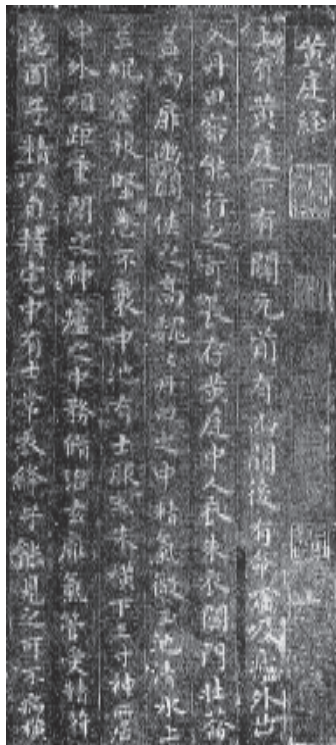 黄庭經
上有黄庭下有關元前有幽闕後有命噓吸廬外出
入丹田審能行之可長存黄庭中人衣朱衣關門壯籥
蓋兩扉幽闕俠之高巍〻丹田之中精氣微玉池清水上
生肥靈根堅志不衰中池有士服赤朱橫下三寸神所居
中外相距重閉之神廬之中務脩治玄廱氣管受精符
急固子精以自持宅中有士常衣絳子能見之可不病橫